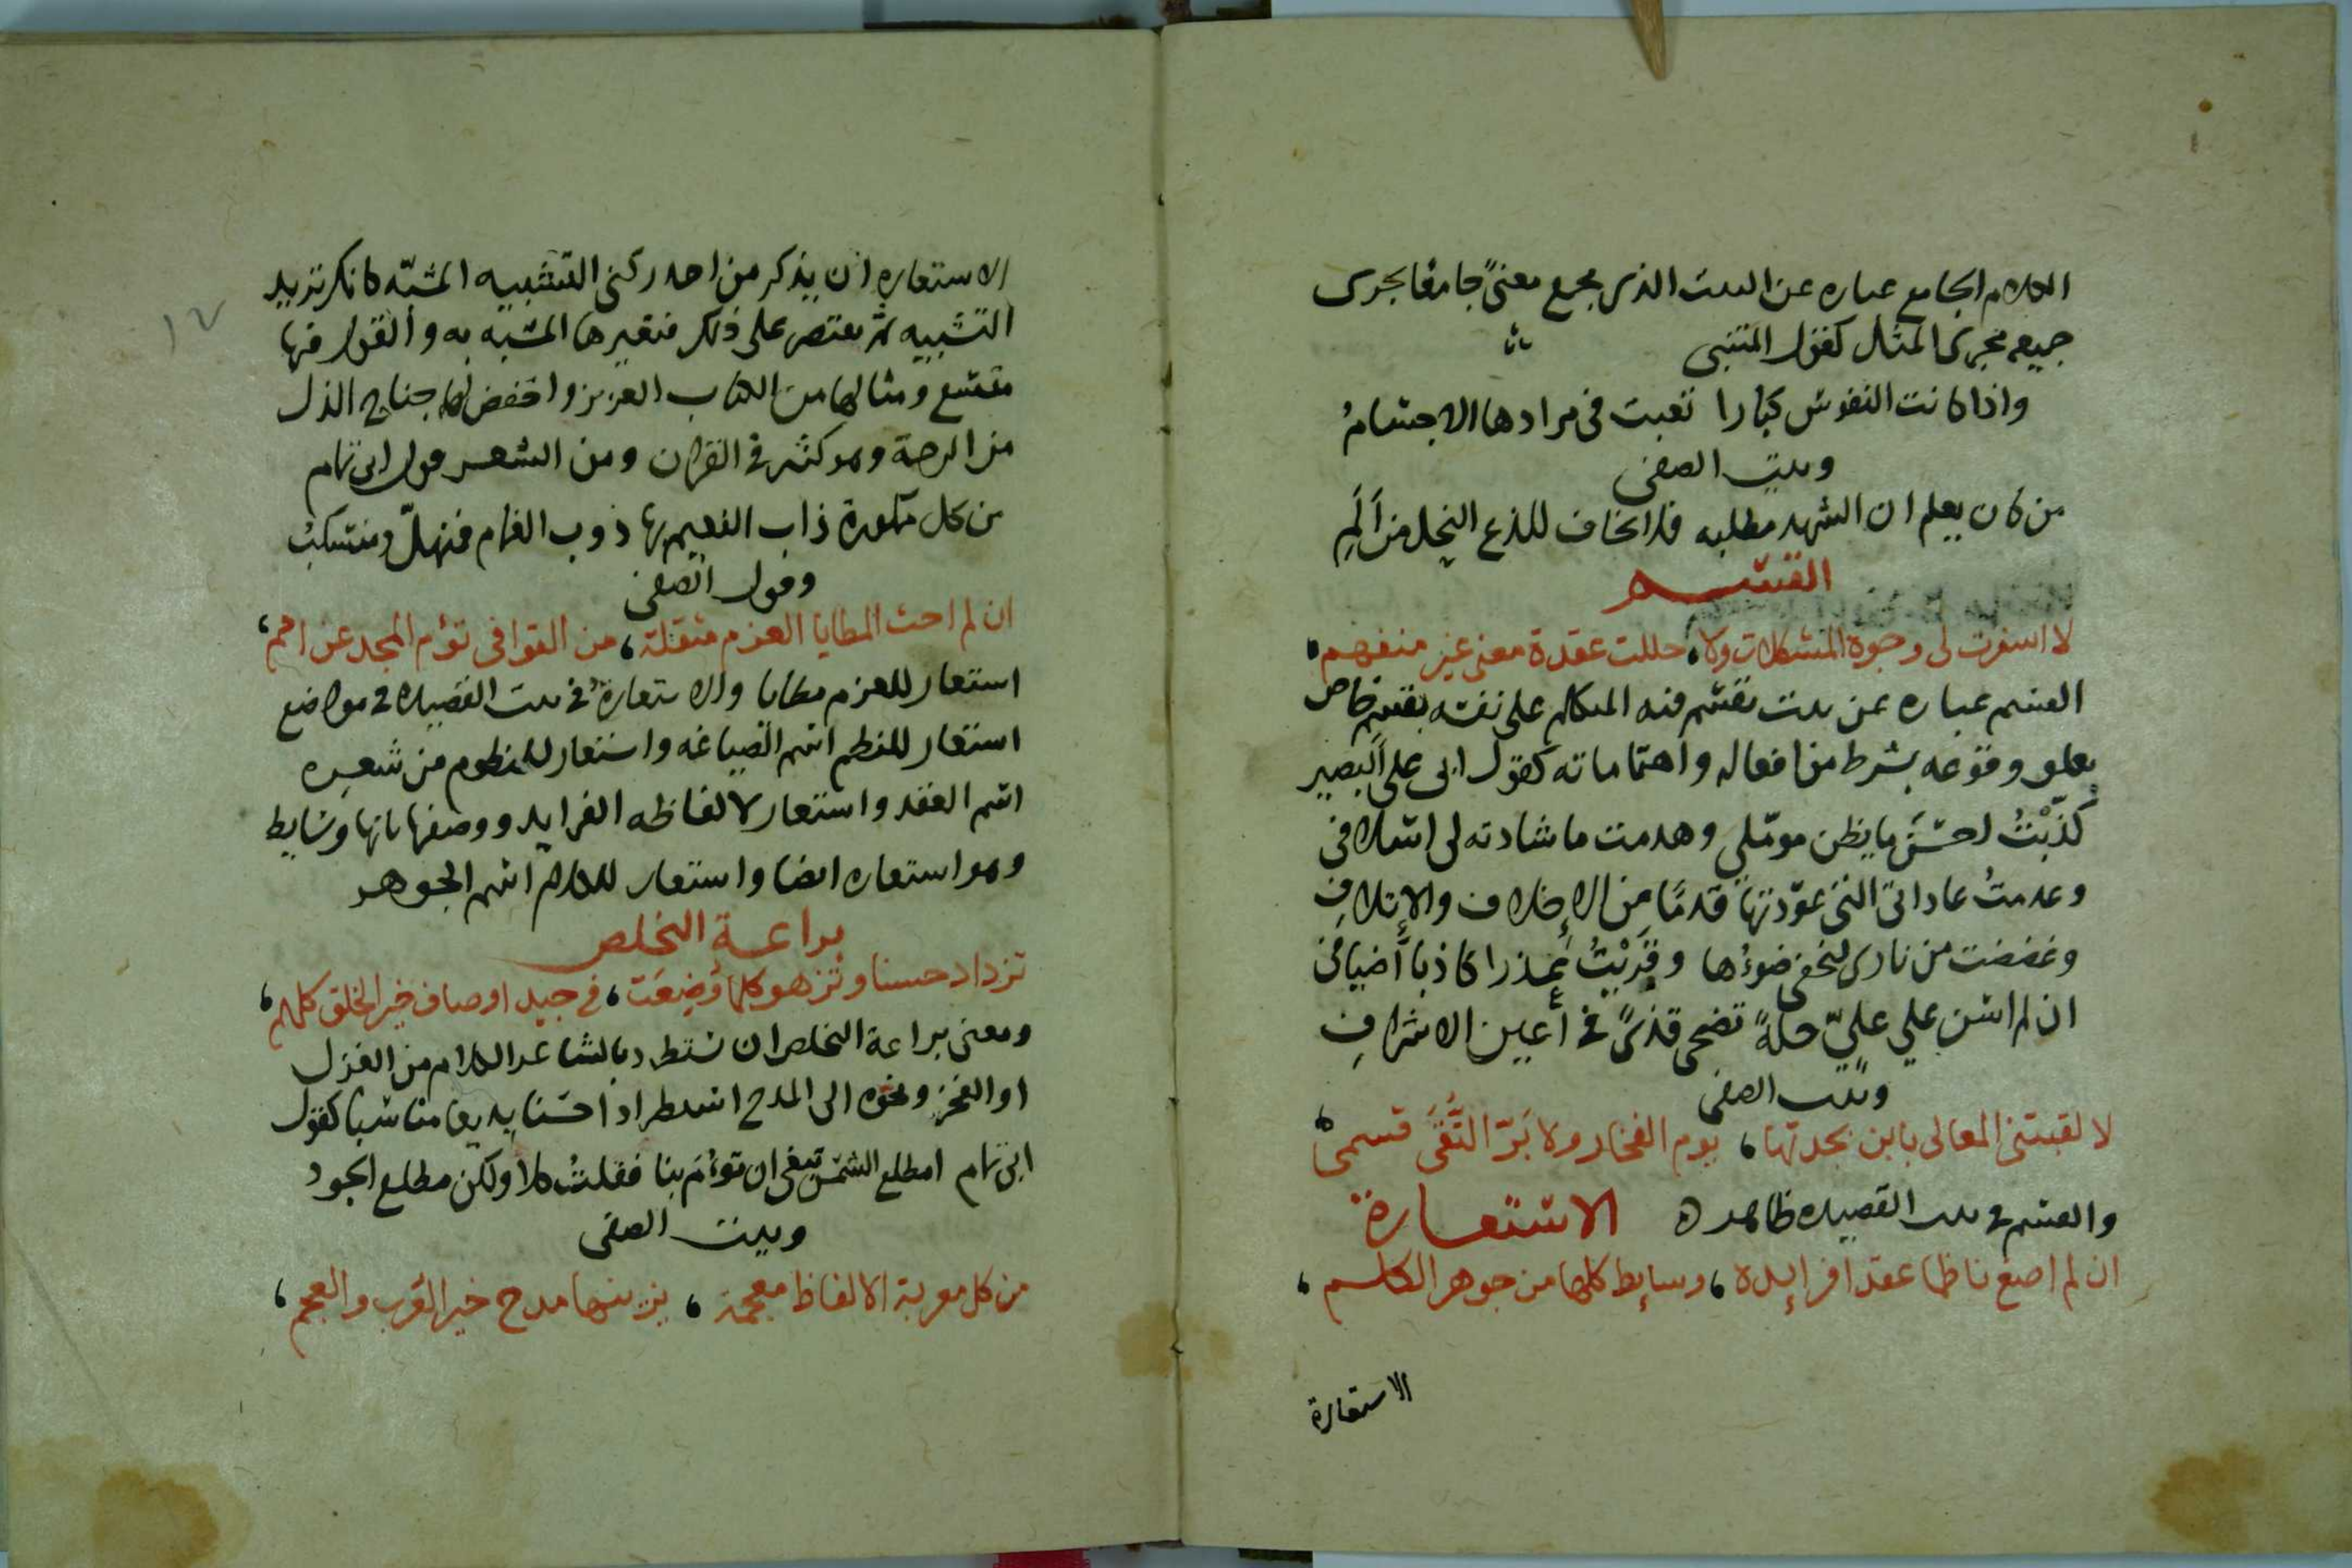 الكلام الجامع عباره عن البيت الذى يجمع معنىً جامعًا يجرى
جميعه مجرى المثل كقول المتنبى
واذا كانت النفوس كبارا تعبت فى مرادها الاجسامُ
وبيت الصفى
من كان يعلم ان الشهد مطلبه فلا يخاف للذع النحل من اَلَمِ
القسم
لا اسفرت لى وجوة المشكلات ولا، حللت عقدة معنى غير منفهم،
القسم عباره عن بيت يقسم فيه المتكلم على نفسه بقسم خاص
يعلق وقوعه بشرط من افعاله واهتماماته كقول ابى على البصير
كذّبْتُ احسَنَ ما يظن موملى وهدمت ما شادته لى اسلافى
وعدمتُ عاداتى التى عوّدتها قدمًا مِن الإخلاف والإتلافِ
وغضضت من نارى ليخفى ضوءُها وقَرَيْتُ عُذرا كاذبا أضيافى
ان لم اشن على علىّ حلةً تضحى قذىً فى أعين الاشرافِ
وبيت الصفى
لا لقبتنى المعالى بابن بجدتها، يوم الفخار ولا بَرّ التُّقَى قسمى،
والقسم فى بيت القصيده ظاهر ه الاستعارة
ان لم اصغ ناظما عقدا فرايده، وسايط كلها من جوهر الكلم،
الاستعارة
١٧
الاستعاره ان يذكر من احد ركنى التشبيه المشبّه كانك تريد
التشبيه ثم تقتصر على ذلك فتعيرها المشبه به والقول فيها
متسع ومثالها من الكتاب العزيز واخفض لهما جناح الذل
من الرحمة وهو كثير فى القران ومن الشعر قول ابى تمام
من كل ممكورة ذاب النعيم بها ذوب الغمام فمنهلّ ومنسكبُ
وقول الصفى
ان لم احث المطايا العزم مثقلة، من القوافى تؤم المجد عن امم،
استعار للعزم مطايا والاستعارة فى بيت القصيده فى مواضع
استعار للنظم اسم الصياغه واستعار للمنظوم من شعره
اسم العقد واستعار لالفاظه الفرايد ووصفها بانها وسايط
وهو استعاره ايضا واستعار للكلام اسم الجوهر
براعة التخلص
تزداد حسنا وتزهو كلما وُضِعَت، فى جيد اوصاف خير الخلق كلهم،
ومعنى براعة التخلص ان يستطرد بالشاعر الكلام من الغزل
او الفخر ونحوه الى المدح استطرادا حسنا بديعا مناسبا كقول
ابى تمام امطلع الشمس تبغى ان تؤمَ بنا فقلتُ كلا ولكن مطلع الجود
وبيت الصفى
من كل معربة الالفاظ معجمة، يزينها مدح خير العُرب والعجم،